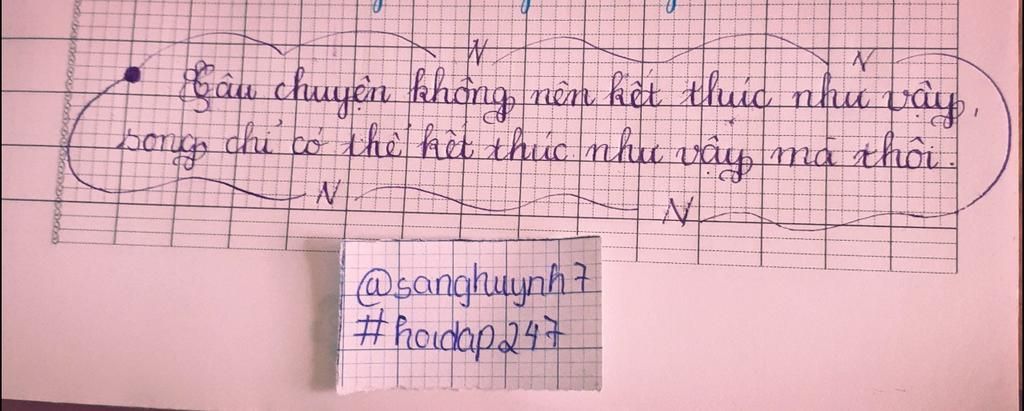 N N
Câu chuyện không nên kết thúc như vậy,
song chỉ có thể kết thúc như vậy mà thôi.
N N
@sanghuynh7
#hoidap247